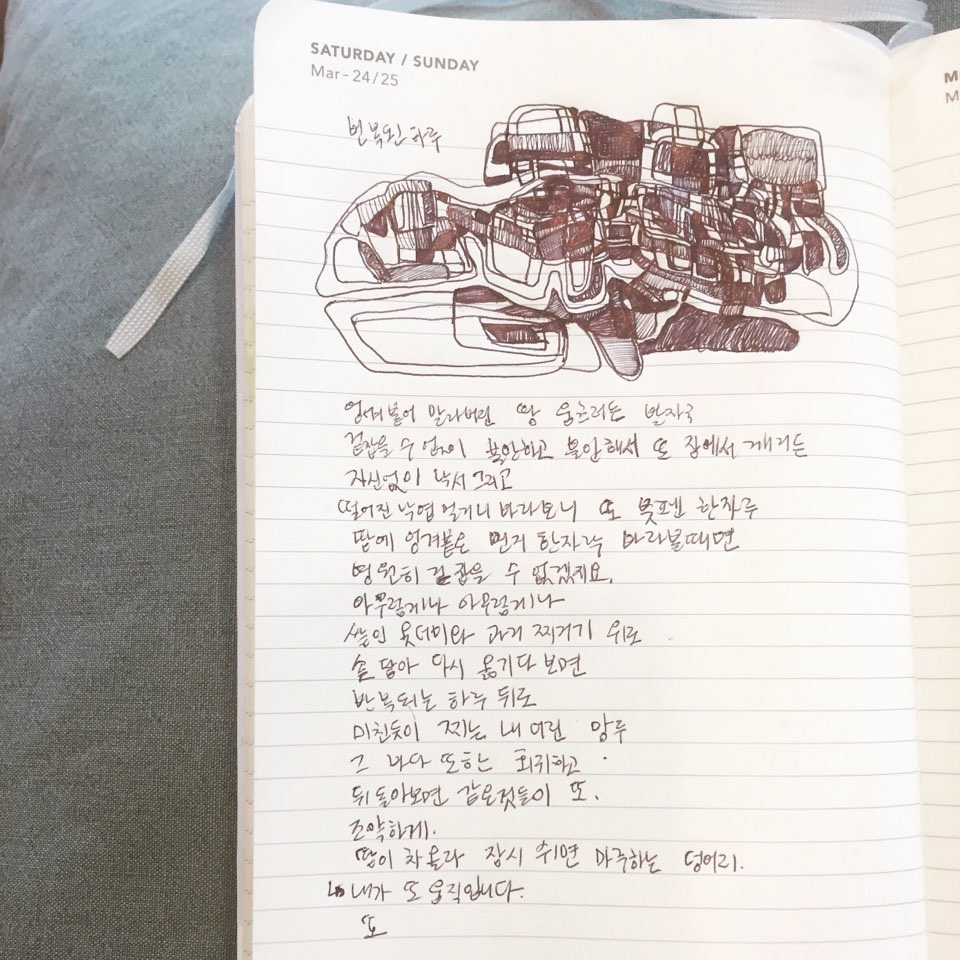 SATURDAY / SUNDAY
Mar-24/25
반복된 하루
엉겨붙어 말라버린 땅 웅크러든 발자국
걷잡을 수 없이 불안하고 불안해서 또 잠에서 깨거든
자신없이 낙서 그리고
떨어진 낙엽 바라보니 또 붓펜 한자루
땀에 엉겨붙은 먼지 한자락 바라볼때면
영원히 걷잡을 수 없겠지요.
아무렇게나 아무렇게나
쌓인 옷더미와 과거 찌꺼기 위로
손 닿아 다시 옮기다 보면
반복되는 하루 뒤로
미친듯이 찌는 내 여린
그 또 하는 회귀하고
뒤돌아보면 같은것들이 또.
조악하게.
땀이 차올라 잠시 쉬면 마주하는 덩어리.
내가 또 움직입니다.
또
M
M